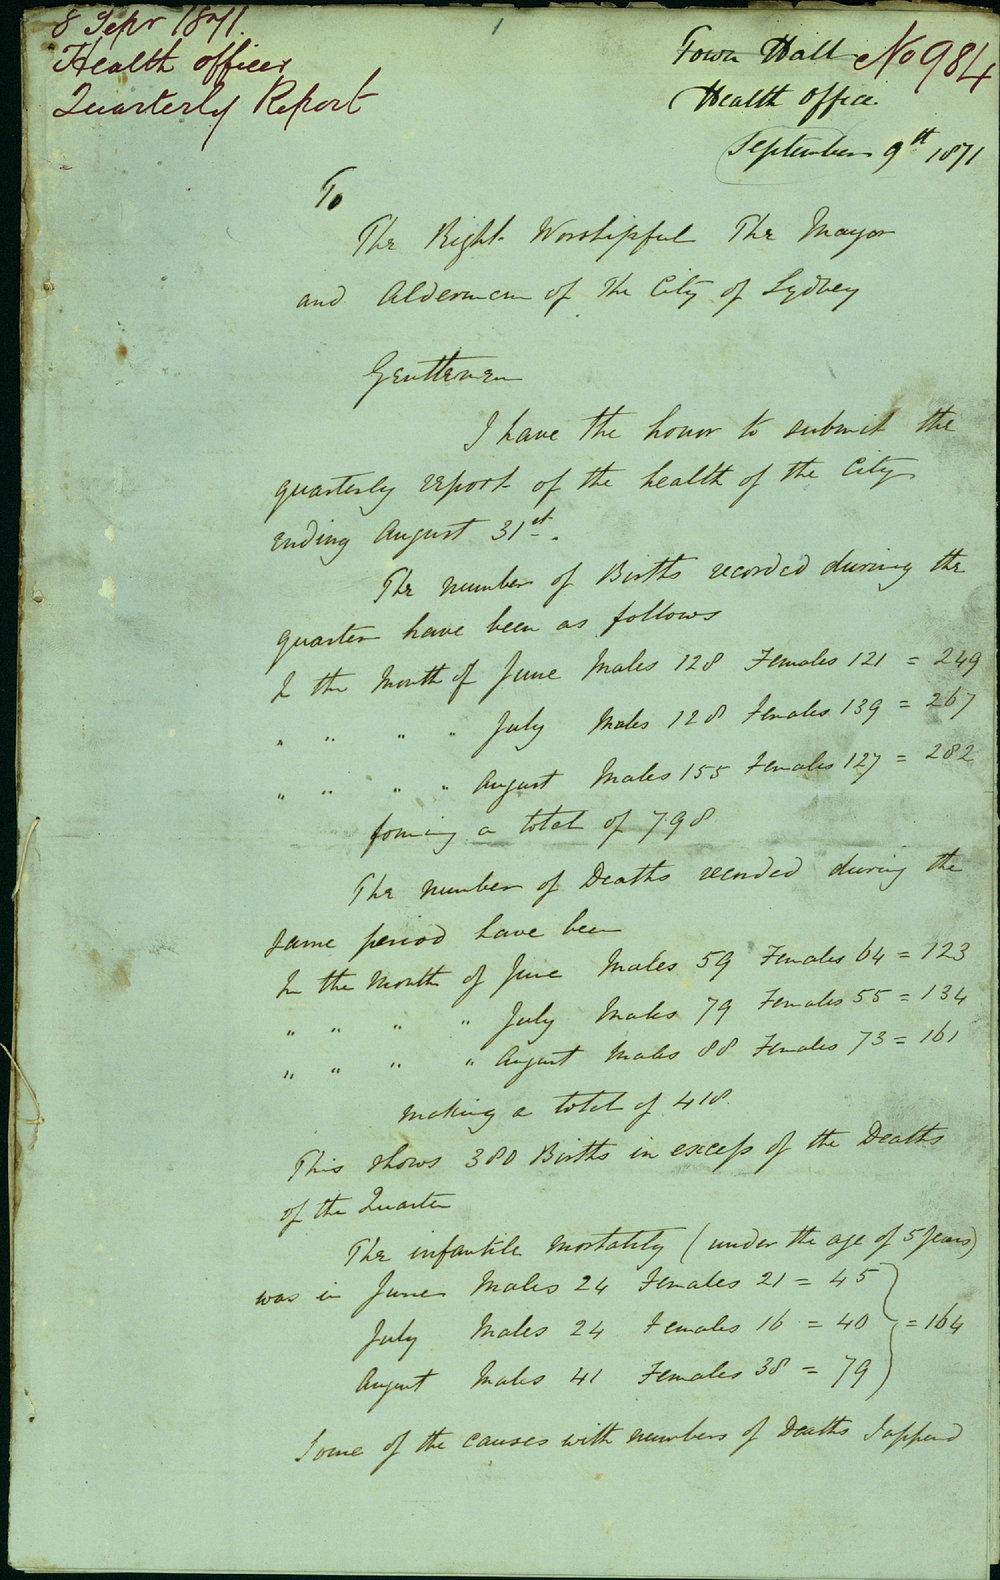 8 Sepr 1871
Health officer
Quarterly Report
No 984
Town Hall
Health Office
September 9th 1871
To
The Right Worshipful The Mayor
and Aldermen of the City of Sydney
Gentlemen
I have the honor to submit the
quarterly report of the health of the City
ending August 31st.
The number of Births recorded during the
quarter have been as follows
In the Month of June Males 128 Females 121 = 249
" " " " July Males 128 Females 139 = 267
" " " " August Males 155 Females 127 = 282
forming a total of 798
The number of Deaths recorded during the
same period have been
In the Month of June Males 59 Females 64 = 123
" " " " July Males 79 Females 55 = 134
" " " " August Males 88 Females 73 = 161
making a total of 418.
This shows 380 Births in excess of the Deaths
of the Quarter
The infantile mortality (under the age of 5 years)
was in June Males 24 Females 21 = 45
July Males 24 Females 16 = 40 = 164
August Males 41 Females 38 = 79
Some of the causes with numbers of Deaths I append